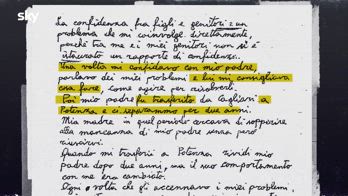 sky
La confidenza fra figli e genitori è un
problema che mi coinvolge direttamente,
perché tra me e i miei genitori non si è
instaurato un rapporto di confidenze.
Una volta mi confidavo con mio padre,
parlavo dei miei problemi e lui mi consigliava
cosa fare, come agire per risolverli.
Poi mio padre fu trasferito da Cagliari a
Potenza e ci separammo per due anni.
Mia madre in quel periodo cercava di sopperire
alla mancanza di mio padre senza però
riuscirvi.
Quando mi trasferii a Potenza rividi mio
padre dopo due anni, ma il suo comportamento
con me era cambiato.
Ogni volta che gli accennavo i miei problemi